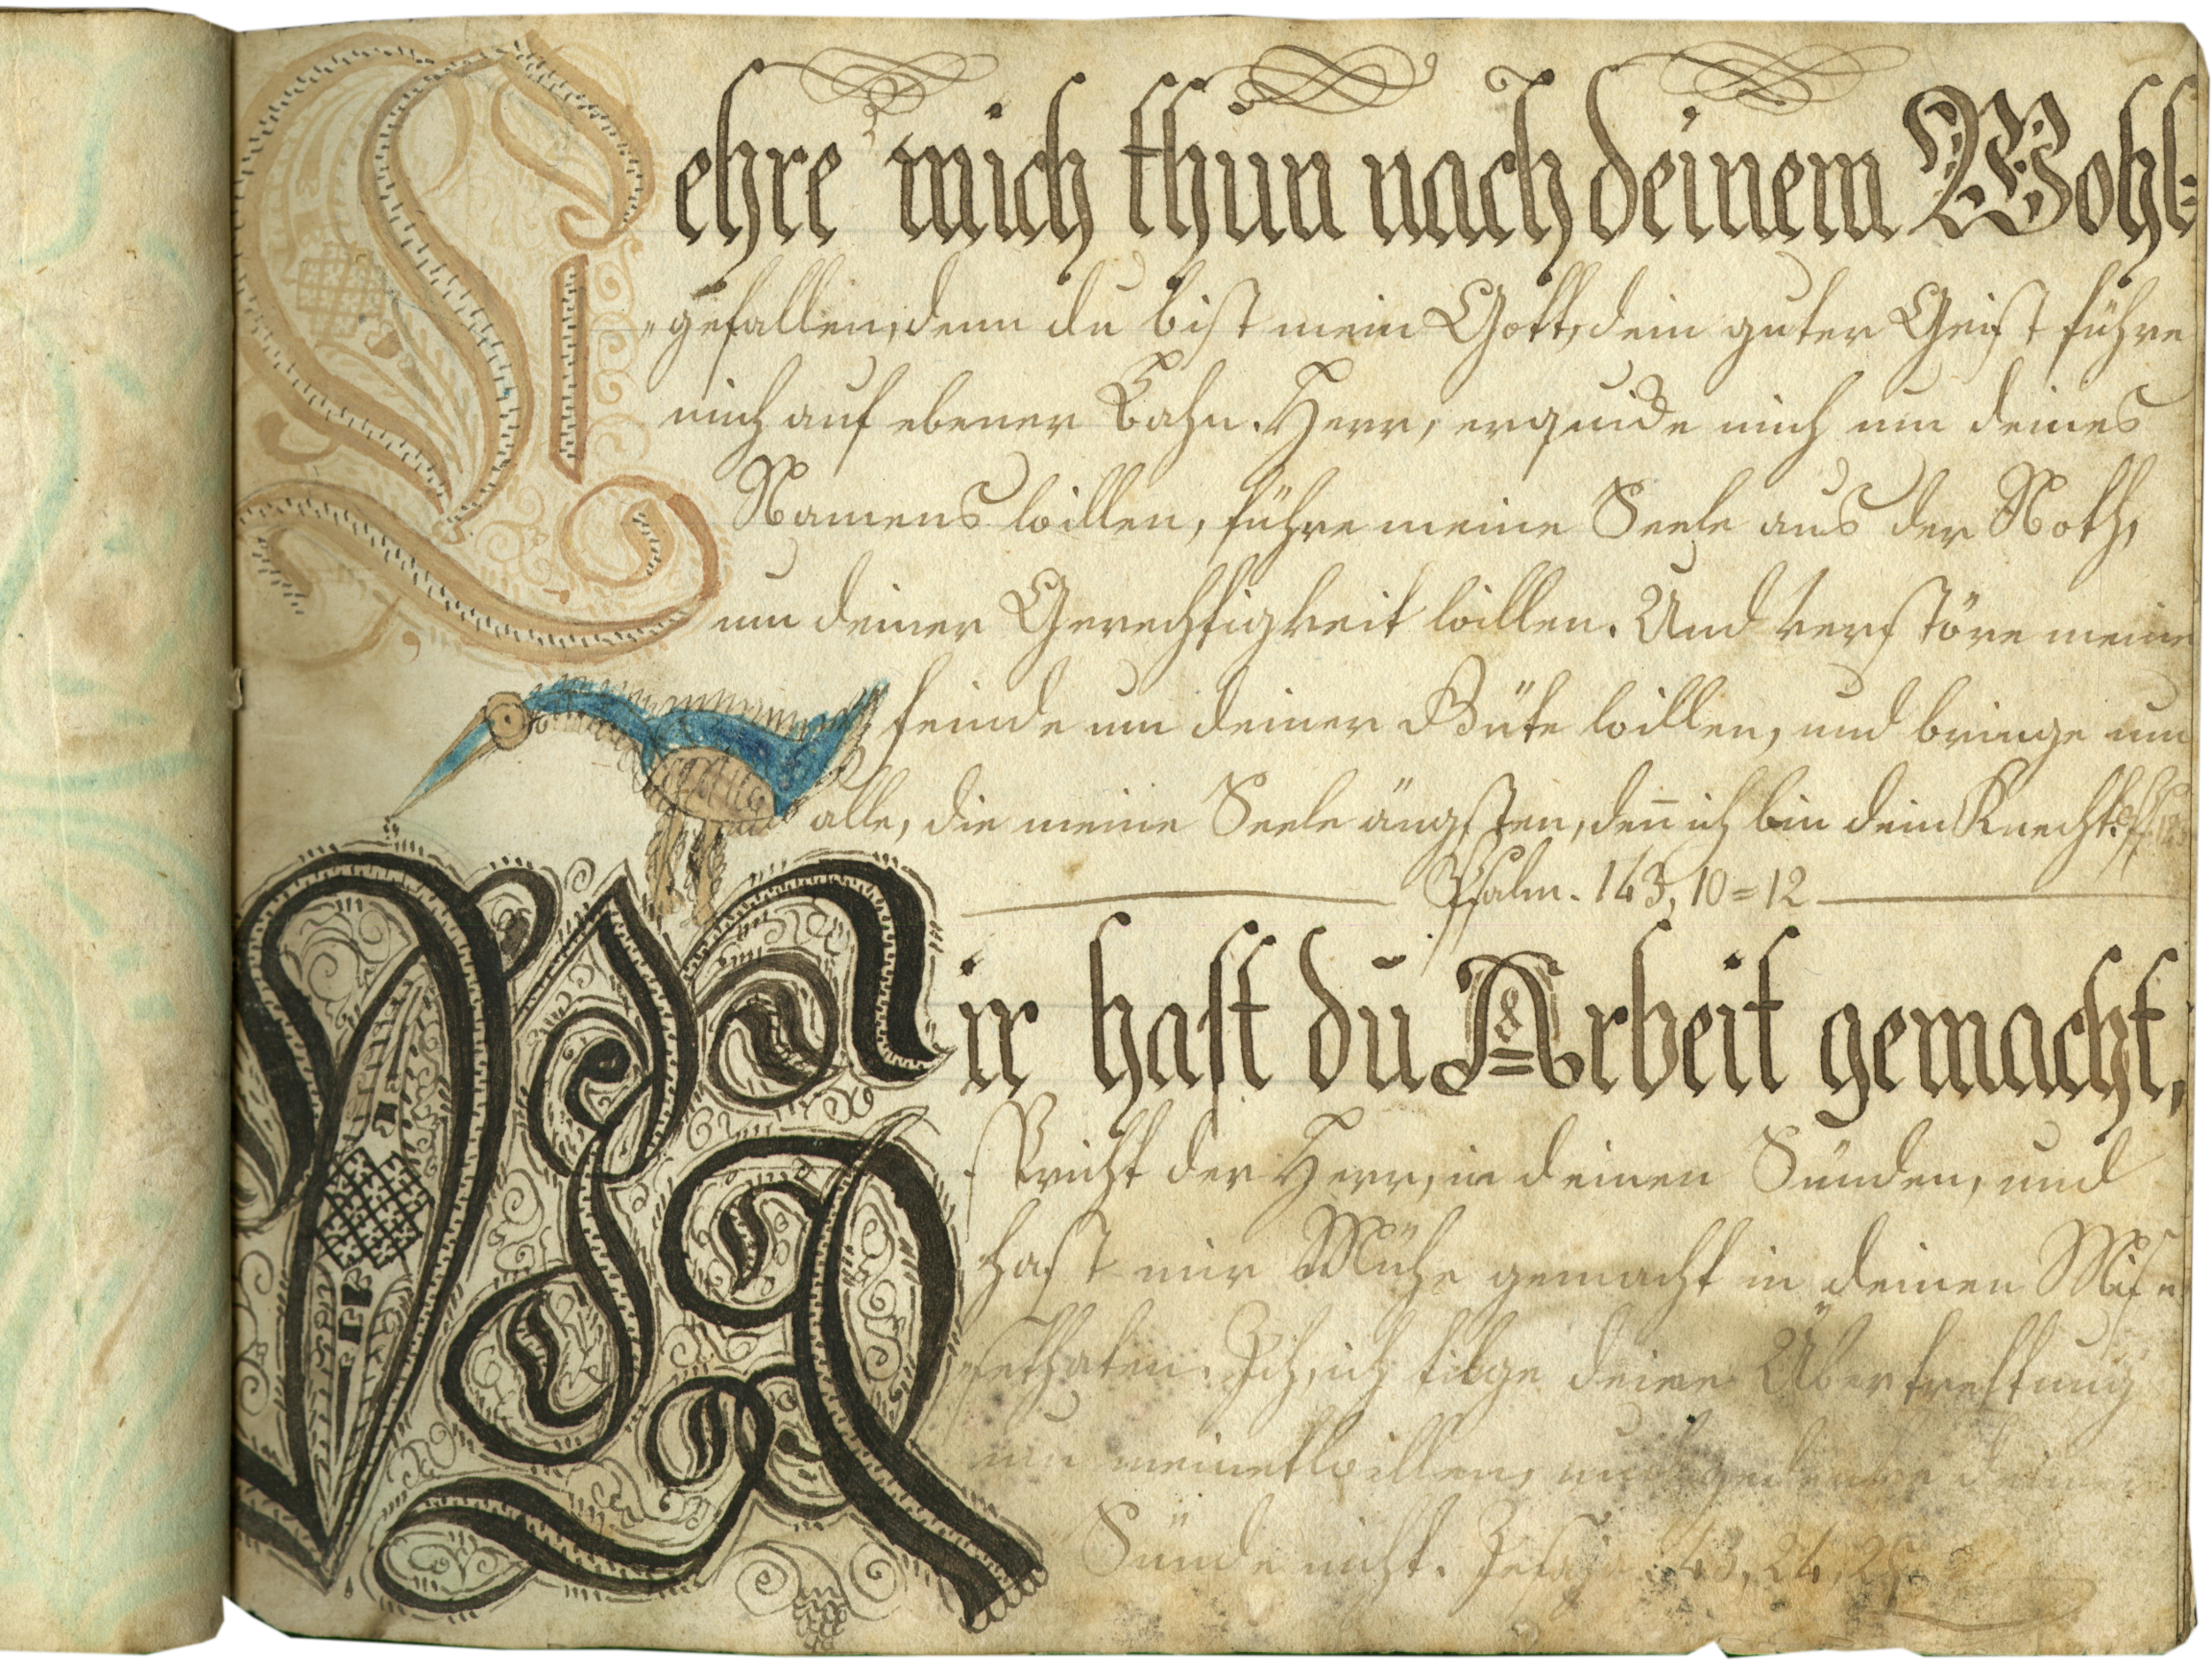 Lehre mich thun nach deinem Wohl=
"gefallen, denn du bist mein Gott, dein guter Geist führe
mich auf ebener Bahn. Herr, erquicke mich um deines
Namens willen, führe meine Seele aus der Noth,
um deiner Gerechtigkeit willen. Und verstöre meine
feinde um deiner Güte willen, und bringe um
alle, die meine Seele ängsten, deñ ich bin dein Knecht.
Psalm. 143, 10=12
Mir hast du Arbeit gemacht,
spricht der Herr, in deinen Sünden, und
hast mir Mühe gemacht in deinen Miss
"sethaten. Ich, ich tilge deine Übertrettung
um meinetwillen, und gedenke deiner
Sünde nicht. Jesaja. 43, 24, 25